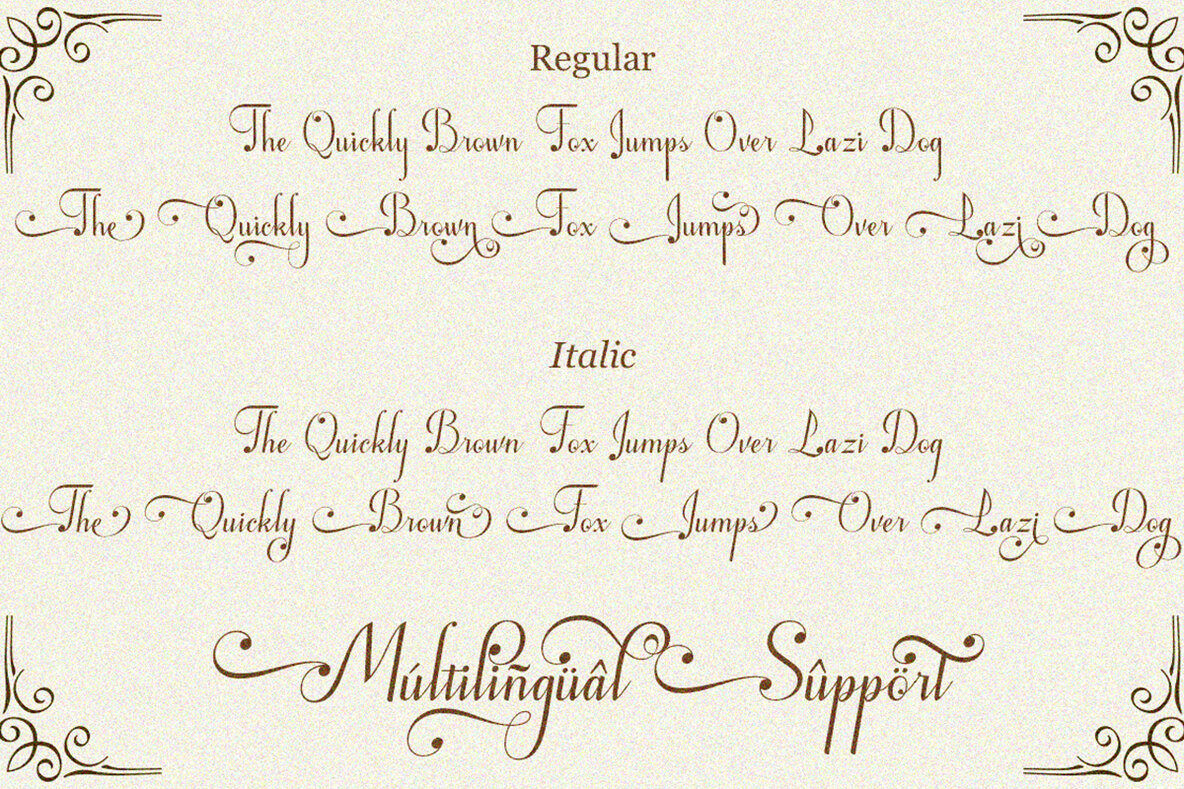 Regular
The Quickly Brown Fox Jumps Over Lazi Dog
The Quickly Brown Fox Jumps Over Lazi Dog
Italic
The Quickly Brown Fox Jumps Over Lazi Dog
The Quickly Brown Fox Jumps Over Lazi Dog
Múltiliñgüâl Sûppört